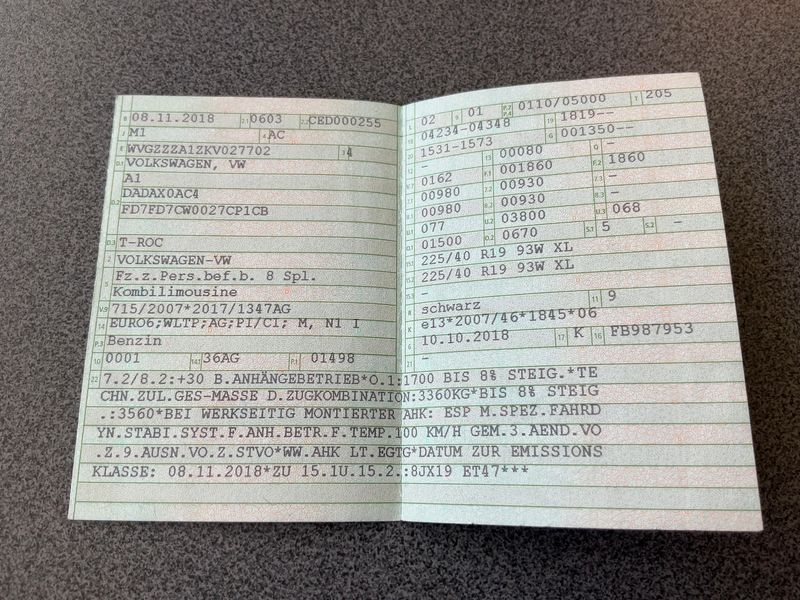 B 08.11.2018 2.1 0603 2.2 CED000255
J M1 4 AC
E WVGZZZA1ZKV027702 3 4
D.1 VOLKSWAGEN, VW
A1
D.2 DADAX0AC4
FD7FD7CW0027CP1CB
D.3 T-ROC
2 VOLKSWAGEN-VW
5 Fz.z.Pers.bef.b. 8 Spl.
Kombilimousine
V.9 715/2007*2017/1347AG
14 EURO6;WLTP;AG;PI/CI; M, N1 I
P.3 Benzin
10 0001 14.1 36AG P.1 01498
L 02 9 01 P.2 P.4 0110/05000 T 205
18 04234-04348 19 1819--
20 1531-1573 G 001350--
12 - 13 00080 Q -
V.7 0162 F.1 001860 F.2 1860
7.1 00980 7.2 00930 7.3 -
8.1 00980 8.2 00930 8.3 -
U.1 077 U.2 03800 U.3 068
O.1 01500 O.2 0670 S.1 5 S.2 -
15.1 225/40 R19 93W XL
15.2 225/40 R19 93W XL
15.3 -
R schwarz 11 9
K e13*2007/46*1845*06
6 10.10.2018 17 K 16 FB987953
21 -
22 7.2/8.2:+30 B.ANHÄNGEBETRIEB*O.1:1700 BIS 8% STEIG.*TE
CHN.ZUL.GES-MASSE D.ZUGKOMBINATION:3360KG*BIS 8% STEIG
.:3560*BEI WERKSEITIG MONTIERTER AHK: ESP M.SPEZ.FAHRD
YN.STABI.SYST.F.ANH.BETR.F.TEMP.100 KM/H GEM.3.AEND.VO
.Z.9.AUSN.VO.Z.STVO*WW.AHK LT.EGTG*DATUM ZUR EMISSIONS
KLASSE: 08.11.2018*ZU 15.1U.15.2.:8JX19 ET47***